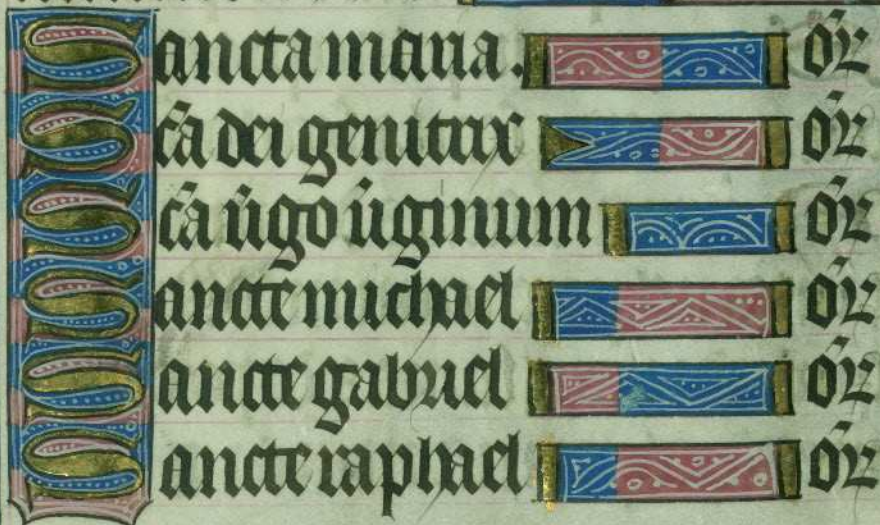 Sancta maria. or̄
Sc̄a dei genitrix or̄
Sc̄a v̄go v̄ginum or̄
Sancte michael or̄
Sancte gabriel or̄
Sancte raphael or̄